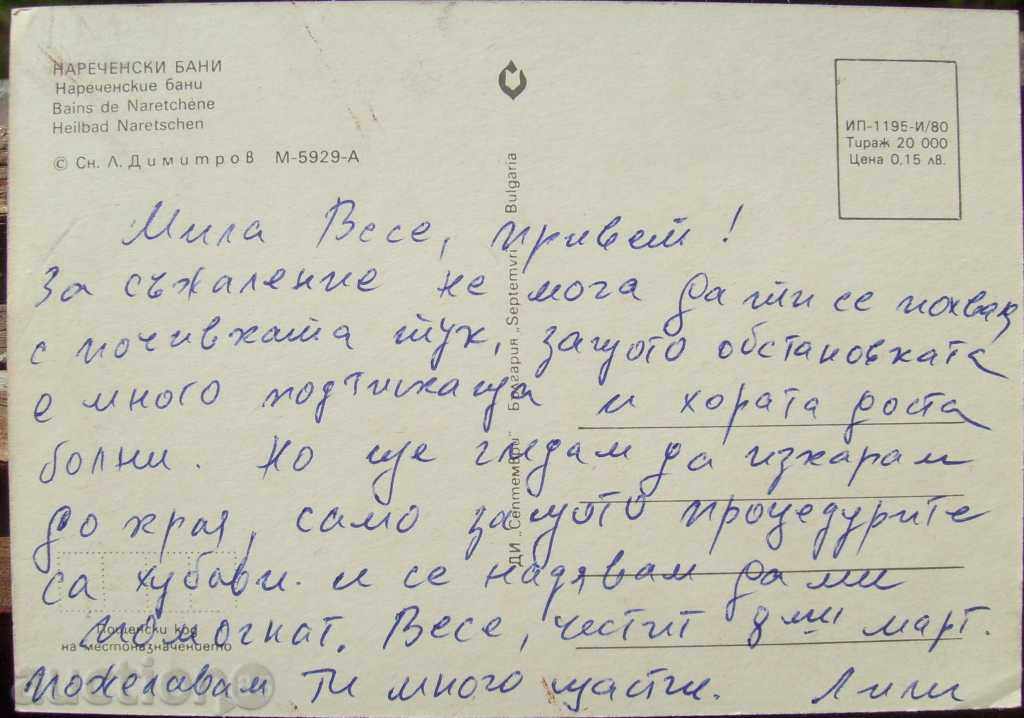 НАРЕЧЕНСКИ БАНИ
Нареченские бани
Bains de Naretchène
Heilbad Naretschen
© Сн. Л. Димитров М-5929-А
ИП-1195-И/80
Тираж 20 000
Цена 0,15 лв.
ДИ „Септември“ България „Septemvri“ Bulgaria
Мила Весе, привет!
За съжаление не мога да ти се похваля
с почивката тук, защото обстановката
е много подтискаща и хората доста
болни. Но ще гледам да изкарам
до края, само защото процедурите
са хубави. и се надявам да ми
помогнат. Весе, честит 8ми март.
Пожелавам Ти много щастие. Лили
Пощенски код
на местоназначението
auction